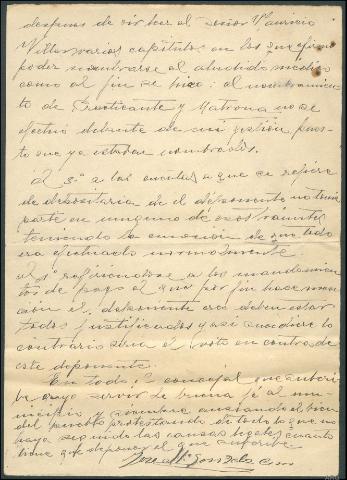 despues de oir leer al señor Mauricio
Villar varios capitulos en los que
poder nombrarse al aludido medico
como al fin se hizo: el nombramien
to de Practicante y Matrona no se
efectuó delante de mi gestión, pues
to que ya estaban nombrados.
Al 8º a las cuentas a que se refiere
de depositaria de el deponente no tuvo
parte en ninguno de esos tramites
teniendo la de que todo
era efectuado normalmente
al 9º refiriendose a los mandamien
tos de pago al que por fin hace men
ción el deponente deben estar
todos justificados y asi
contrario seria el voto en contra de
este deponente.
En todo, el concejal que suscri
be servir de buena fé al mu
nicipio y el bien
del pueblo protestando de todo lo que no
haya seguido las causas legales cuanto
tiene que deponer el que suscribe
Jose Mª Gonzalez